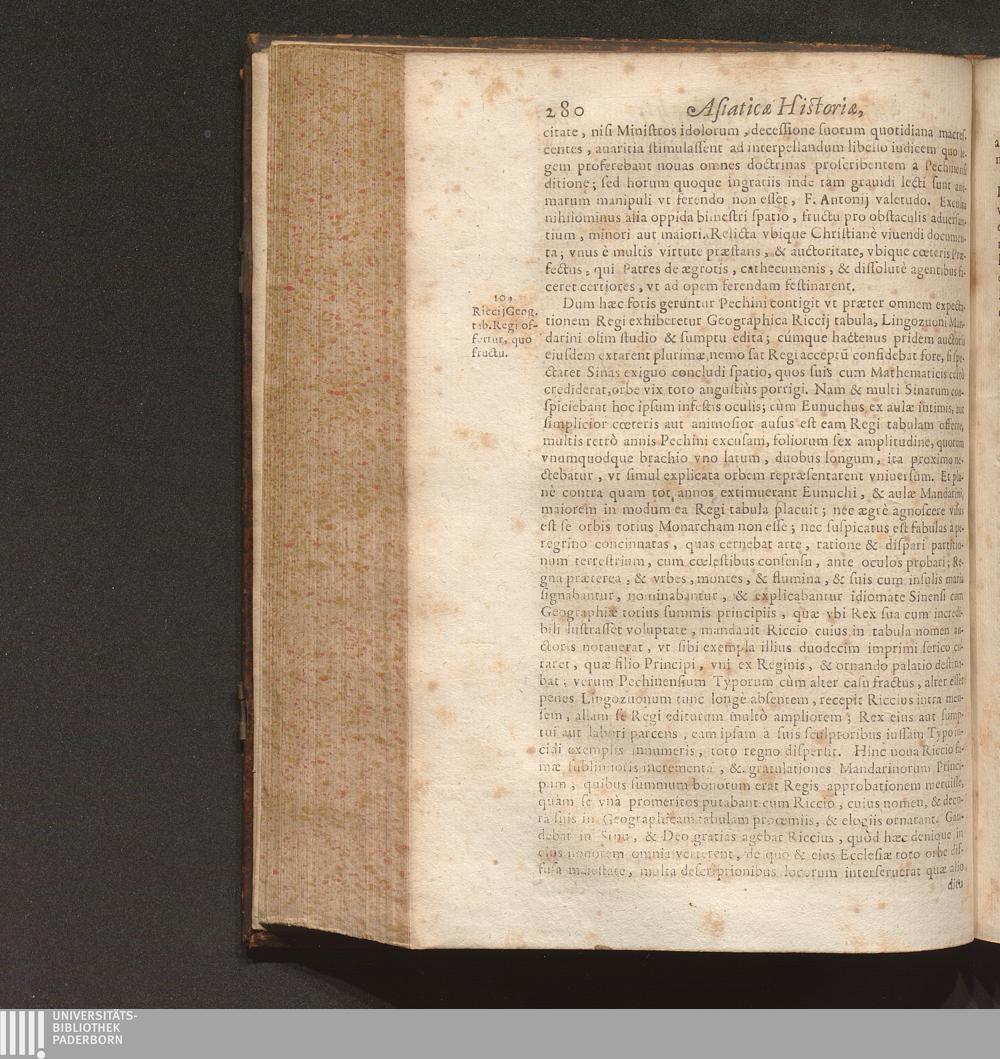 280 Asiaticæ Historiæ,
citate, nisi Ministros idolorum, decessione suorum quotidiana
centes, auaritia stimulassent ad interpellandum libello iudicem quo
gem proferebant nouas omnes doctrinas proscribentem à
ditione; sed horum quoque ingratiis inde tam grauidi lecti sunt
marum manipuli vt ferendo non esset, F. Antonij valetudo.
nihilominus alia oppida bimestri spatio, fructu pro obstaculis
tium, minori aut maiori. Relicta vbique Christianè viuendi
ta; vnus è multis virtute præstans, & auctoritate, vbique cœteris Præ-
fectus, qui Patres de ægrotis, cathecumenis, & dissolutè agentibus
ceret certiores, vt ad opem ferendam festinarent.
10.
Riccij Geog.
tab. Regi of-
fertur, quo
fructu.
Dum hæc foris geruntur Pechini contigit vt præter omnem
tionem Regi exhiberetur Geographica Riccij tabula, Lingozuoni Man-
darini olim studio & sumptu edita; cùmque hactenus pridem
eiusdem extarent plurimæ, nemo sat Regi acceptũ confidebat fore, si spe-
ctaret Sinas exiguo concludi spatio, quos suis cum Mathematicis
crediderat, orbe vix toto angustiùs porrigi. Nam & multi Sinarum con-
spiciebant hoc ipsum infestis oculis; cùm Eunuchus ex aulæ intimis, aut
simplicior cœteris aut animosior ausus est eam Regi tabulam offerre,
multis retrò annis Pechini excusam, foliorum sex amplitudine, quorum
vnumquodque brachio vno latum, duobus longum, ita proximo ne-
ctebatur, vt simul explicata orbem repræsentarent vniuersum. Et pla-
nè contra quam tot annos extimuerant Eunuchi, & aulæ Mandarini,
maiorem in modum ea Regi tabula placuit; nec ægrè agnoscere visus
est se orbis totius Monarcham non esse; nec suspicatus est fabulas à pe-
regrino concinnatas, quas cernebat arte, ratione & dispari partitio-
num terrestrium, cum cœlestibus consensu, ante oculos probari; Re-
gna præterea, & vrbes, montes, & flumina, & suis cum insulis maria
signabantur, nominabantur, & explicabantur idiomate Sinensi cum
Geographiæ totius summis principiis, quæ vbi Rex sua cum incredi-
bili lustrasset voluptate, mandauit Riccio cuius in tabula nomen au-
ctoris notauerat, vt sibi exempla illius duodecim imprimi serico cu-
raret, quæ filio Principi, vni ex Reginis, & ornando palatio destina-
bat; verum Pechinensium Typorum cùm alter casu fractus, alter esset
penes Lingozuonum tunc longè absentem, recepit Riccius intra men-
sem, aliam se Regi editurum multò ampliorem; Rex eius aut sump-
tui aut labori parcens, eam ipsam à suis sculptoribus iussam Typo in-
cidi exemplis innumeris, toto regno dispersit. Hinc noua Riccio fa-
mæ sublimioris incrementa, & gratulationes Mandarinorum Princi-
pum, quibus summum bonorum erat Regis approbationem meruisse,
quàm se vnà promeritos putabant cum Riccio, cuius nomen, & deco-
ra suis in Geographicam tabulam proœmiis, & elogiis ornarant. Gau-
debat in Sinu, & Deo gratias agebat Riccius, quòd hæc denique in
eius honorem omnia verterent, de quo & eius Ecclesiæ toto orbe dif-
fusa maiestate, multa descriptionibus locorum interseruerat quæ alio-
UNIVERSITÄTS-
BIBLIOTHEK
PADERBORN